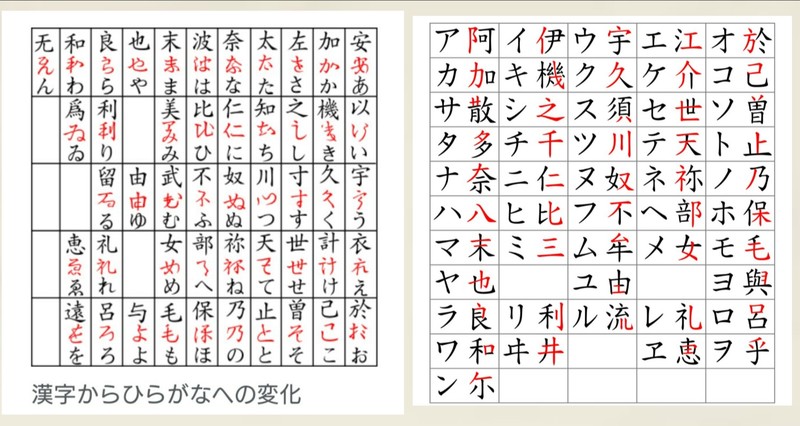 安あ 以い 宇う 衣え 於お
加か 機き 久く 計け 己こ
左さ 之し 寸す 世せ 曽そ
太た 知ち 川つ 天て 止と
奈な 仁に 奴ぬ 祢ね 乃の
波は 比ひ 不ふ 部へ 保ほ
末ま 美み 武む 女め 毛も
也や 由ゆ 与よ
良ら 利り 留る 礼れ 呂ろ
和わ 爲ゐ 恵ゑ 遠を
无ん
漢字からひらがなへの変化
ア阿 イ伊 ウ宇 エ江 オ於
カ加 キ機 ク久 ケ介 コ己
サ散 シ之 ス須 セ世 ソ曽
タ多 チ千 ツ川 テ天 ト止
ナ奈 ニ仁 ヌ奴 ネ祢 ノ乃
ハ八 ヒ比 フ不 ヘ部 ホ保
マ末 ミ三 ム牟 メ女 モ毛
ヤ也 ユ由 ヨ與
ラ良 リ利 ル流 レ礼 ロ呂
ワ和 ヰ井 ヱ恵 ヲ乎
ン尓